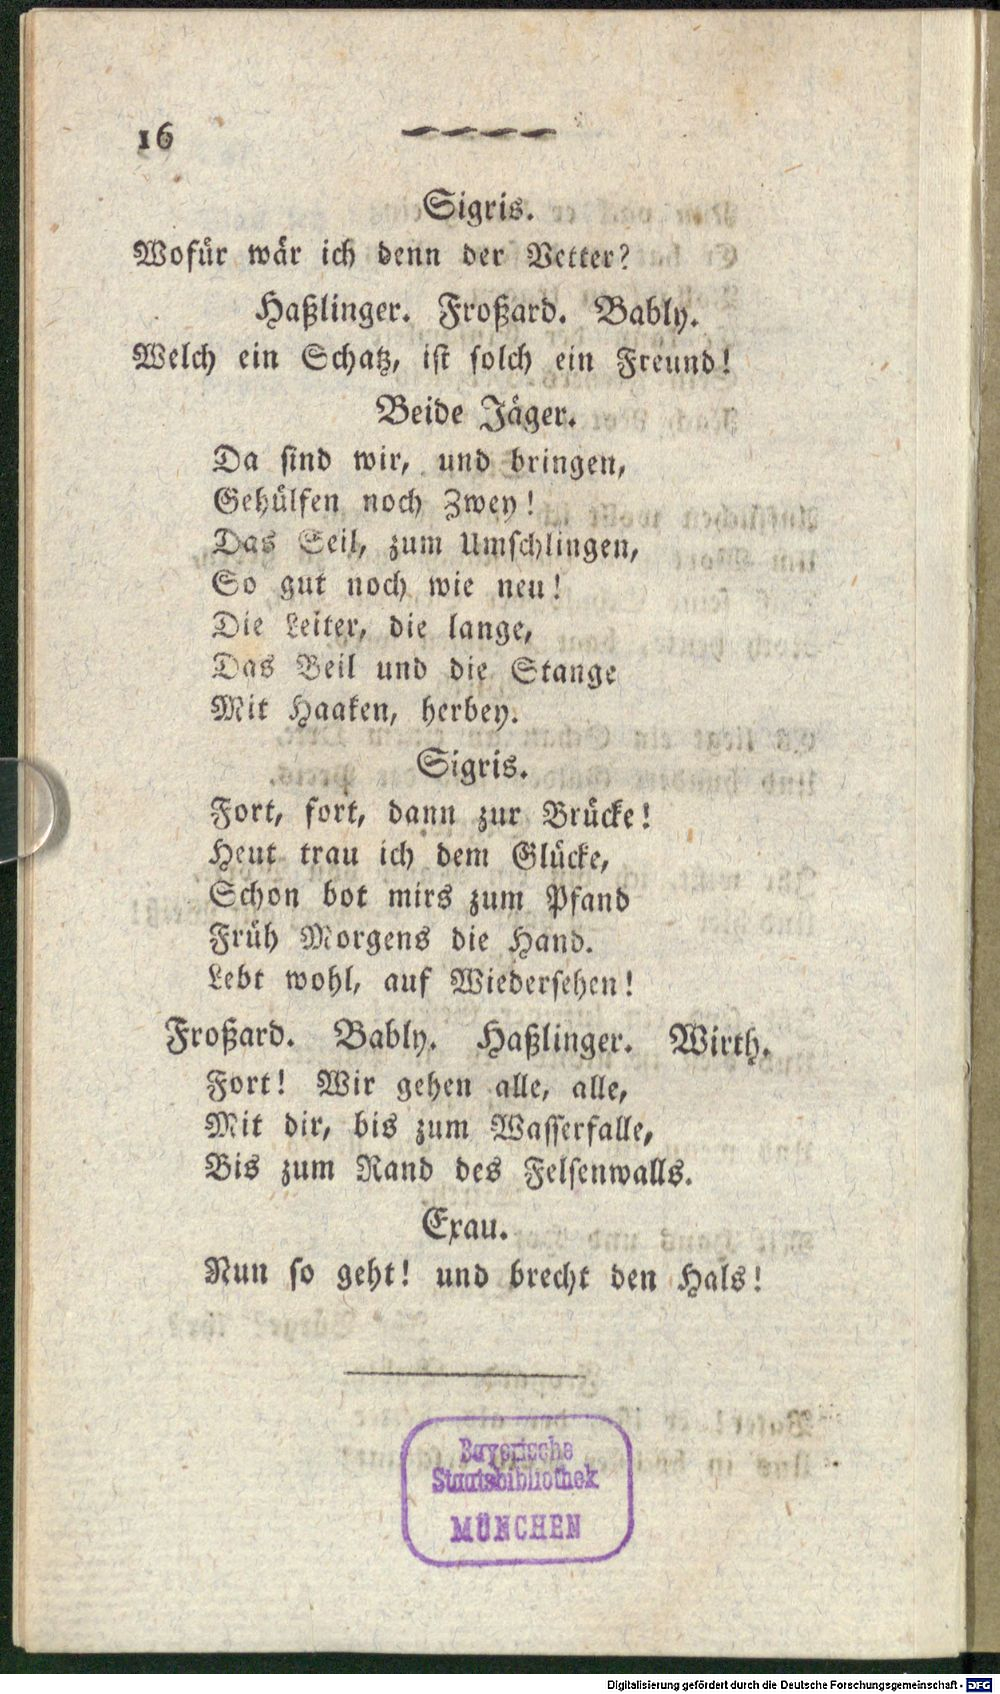 16
Sigris.
Wofür wär ich denn der Vetter?
Haßlinger. Froßard. Bably.
Welch ein Schatz, ist solch ein Freund!
Beide Jäger.
Da sind wir, und bringen,
Gehülfen noch Zwey!
Das Seil, zum Umschlingen,
So gut noch wie neu!
Die Leiter, die lange,
Das Beil und die Stange
Mit Haaken, herbey.
Sigris.
Fort, fort, dann zur Brücke!
Heut trau ich dem Glücke,
Schon bot mirs zum Pfand
Früh Morgens die Hand.
Lebt wohl, auf Wiedersehen!
Froßard. Bably. Haßlinger. Wirth.
Fort! Wir gehen alle, alle,
Mit dir, bis zum Wasserfalle,
Bis zum Rand des Felsenwalls.
Exau.
Nun so geht! und brecht den Hals!
Bayerische
Staatsbibliothek
MÜNCHEN
Digitalisierung gefördert durch die Deutsche Forschungsgemeinschaft - DFG